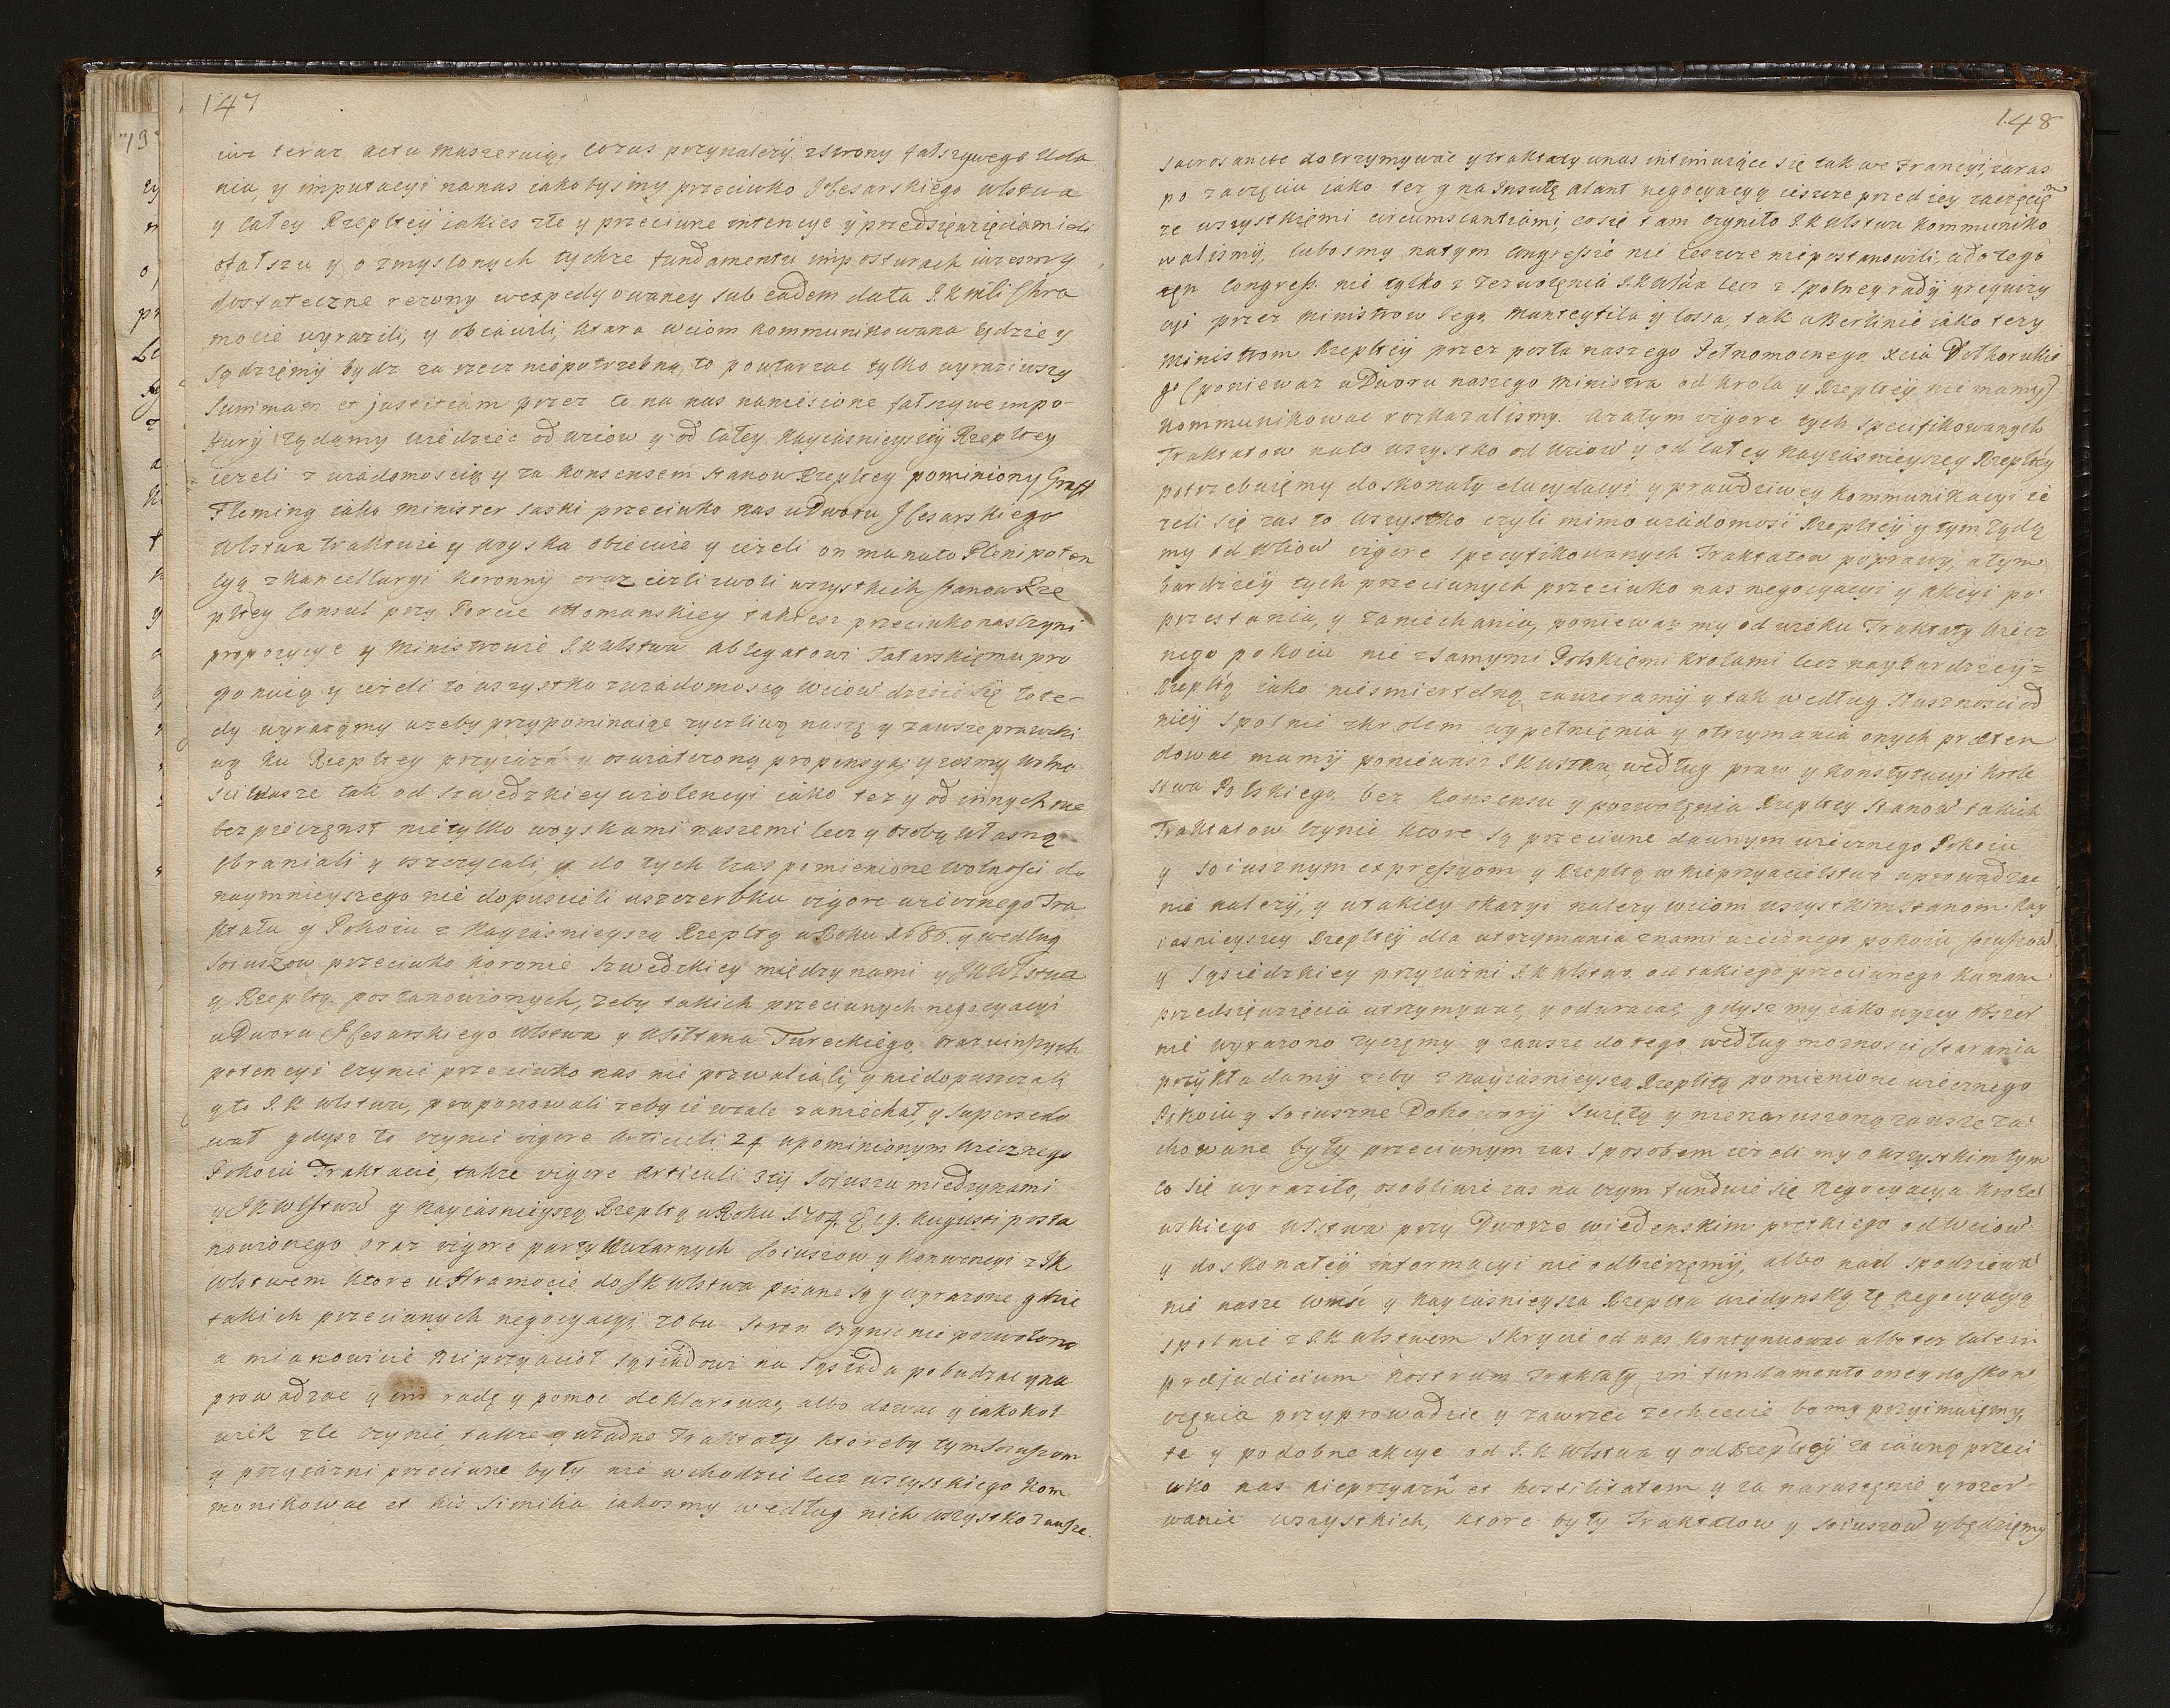 147
iuz teraz actu maszeruią, co zas przynalezy z strony fałszywego Uda
nia, y imputacyi na nas iakobysmy przeciwko JCesarskiego Mstwa
y całey Rzepltey iakies złe y przeciwne intencye y przedsięwzięcia mieli
o fałszu y o zmyslonych tychze fundamentu imposturach wzesmy
dostateczne rezony w expedyowaney sub eadem data J. K mści Hra
mocie wyrazili, y obiawili, ktora wciom kommunikowana będzie y
sądzięmy bydz za rzecz niepotrzebną, to powtarzac tylko wyraziwszy
summam et justitiam przez te na nas naniesione fałszywe impo-
stury ządamy wiedziec od wciow y od całey Nayiasnieyszey Rzepltey
iezeli z wiadomoscią y za konsensem stanow Rzepltey pominiony Graff
Fleming iako minister saski przeciwko nas u Dworu JCesarskiego
Mstwa traktuie y woyska obiecuie y iezeli on ma na to Plenipoten
cyą z Kancellaryi Koronny oraz iezli z woli wszystkich stanow Rze
pltey Consul przy Porcie ottomanskiey takzesz przeciwko nas czyni
propozycye y Ministrowie J K Mstwa ablegatowi Tatarskięmu pro
ponuią y iezeli to wszystko z wiadomoscą Wciow dzieie się to te-
dy wyrazęmy azeby przypominaiąc zyczliwą naszę y zawsze prawdzi
wą ku Rzepltey przyiazn y oswiatczoną propensyą; yzesmy Wolno
sci Wasze tak od szwedzkiey wiolencyi iako tez y od innych nie
bezpieczęnst nie tylko woyskami naszemi lecz y osobą własną
obraniali y oszczycali, y do tych czas pomienione wolnosci do
naymnieyszego nie dopuscieli uszczerbku vigore wiecznego Tra
ktatu y Pokoiu z Nayiasnieysza Rzepltą w Roku 1686. y według
soiuszow przeciwko Koronie szwedzkiey między nami y JKMstwa
y Rzepltą postanowionych, zeby takich przeciwnych negocyacyi
u Dworu JCesarskiego Mstwa y u Sołtana Tureckiego, oraz u inszych
potencyi czynic przeciwko nas nie pozwalali, y nie dopuszczali
y to J. K Mstwu, proponowali zeby ie wcale zaniechał, y supersedo
wał gdysz to czynic vigore articuli 24 w pominionym wiecznego
Pokoiu Traktacie, takze vigore articuli 3tij soiuszu między nami
y JKMstwu y Nayiasnieyszą Rzepltą w Roku 1704 19. Augusti posta
nowionego oraz vigore partykularnych soiuszow y konwencyi z JK
Mstwem ktore w Hramocie do JK Mstwa pisane są y wyrazone gdzie
takich przeciwnych negocyacyi z obu stron czynic nie pozwolono
a mianowicie nieprzyacioł sąsiadowi na sąsiada pobudzac y na
prowadzac y im radę y pomoc deklarowac, albo dawac y iakokol
wiek złe czynic, takze y w zadne traktaty ktoreby tym soiuszom
y przyiazni przeciwne były nie wchodzic lecz wszystkiego kom
monikowac et his similia iakosmy według nich wszystko zawsze.
148
sacrosancte dotrzymywac y traktaty w nas intimuiące się tak we Francyi, zaras
po zaczęciu iako tez y na Insulę alant negocyacyą ieszcze przed iey zaczęcię
ze wszystkięmi circumstantiami, co się tam czyniło J. K Mstwu kommuniko
walismy, lubosmy na tym congressie nic ieszcze nie postanowili, a do tego
ten congress. nie tylko z zezwolęnia J.K Mstwa lecz z spolney rady y requizy
cyi przez ministrow iego, Manteyfila y Lossa, tak w Berlinie iako tezy
ministrom Rzepltey przez posła naszego Pełnomocnego xcia Dołhorukie
go (poniewaz u Dworu naszego ministra od Krola y Rzepltey nie mamy)
kommunikowac rozkazalismy. a zatym vigore tych specifikowanych
Traktatow na to wszystko od Wciow y od całey Nayiasnieyszey Rzepltey
potrzebuięmy doskonały elucydacyi y prawdziwey kommunikacyi ie
zeli się zas to wszystko czyli mimo wiadomosi Rzepltey y tym ządę
my od Wciow vigore specyfikowanych Traktatow poprawy, a tym
bardzięy tych przeciwnych przeciwko nas negocyacyi y akcyi po
przestania, y zaniechania, poniewaz my od wieku Traktaty wiecz
nego pokoiu nie z samymi Polskięmi krolami lecz naybardzięy z
Rzepltą iako niesmiertelną zawieramy y tak według słusznosci od
niey spolnie z krolem wypełnięnia y otrzymania onych præten
dowac mamy poniewasz J K Mstwa według praw y Konstytucyi Krole
stwa Polskiego bez konsensu y pozwolęnia Rzepltey stanow takich
Traktatow czynic ktore są przeciwne dawnym wiecznego Pokoiu
y soiusznym expressyom y Rzepltą w nieprzyacielstwo wprowadzac
nie nalezy, y w takiey okazyi nalezy wciom wszystkim stanom Nay
iasnieyszey Rzepltey dla utrzymania z nami wiecznego pokoiu soiuszow
y sąsiedzkiey przyiazni J. K Mstwo od takiego przeciwnego ku nam
przedsięwzięcia utrzymywac, y odwracac, gdysz my iako wyzey obszer
nie wyrazono zyczęmy y zawsze do tego według moznosci starania
przykładamy zeby z Nayiasnieysza Rzepltą pomienione wiecznego
Pokoiu y soiuszne Dohowory swięty y nienaruszoną zawsze za
chowane były przeciwnym zas sposobem iezeli my o wszystkim tym
co się wyraziło, osobliwie zas na czym funduie się negocyacya krole
wskiego Mstwa przy Dworze wiedenskim prętkiego od Wciow
y doskonałey informacyi nie odbierzęmy, albo nad spodziewa
nie nasze wmśc y Nayiasnieysza Rzeplta wiedynską tę negocyacyą
spolnie z J K Mstwem skrycie od nas kontynuowac albo tez tute in
præjudicium nostrum traktaty in fundamento oney do skon
częnia przyprowadzic y zawrzec zechcecie bo my przyimuięmy,
te y podobne akcye od J. K Mstwa y od Rzepltey za iawną przeci
wko nas nieprzyazń et hostilitatem y za naruszęnie y rozer-
wanie wszystkich, ktore były Traktatow y soiuszow y będzięmy